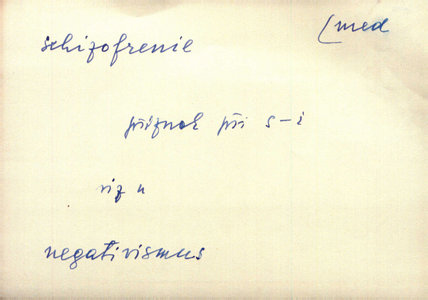 schizofrenie (med
příznak při s-i
viz u
negativismus